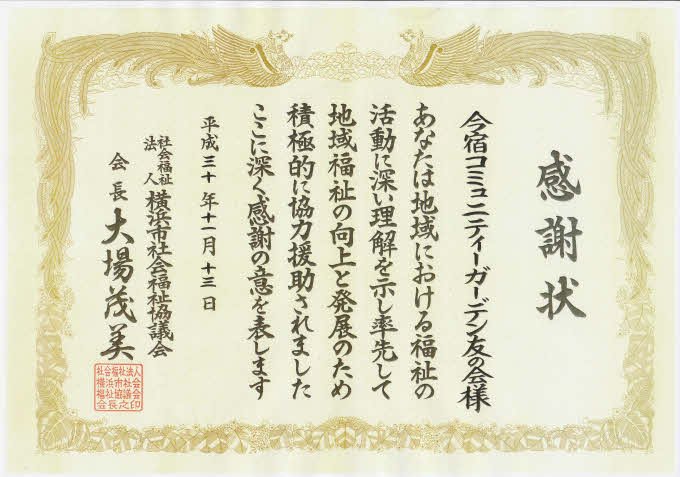 感謝状
今宿コミュニティーガーデン友の会様
あなたは地域における福祉の
活動に深い理解を示し率先して
地域福祉の向上と発展のため
積極的に協力援助されました
ここに深く感謝の意を表します
平成三十年十一月十三日
社会福祉法人 横浜市社会福祉協議会
会長 大場茂美
社会福祉法人
横浜市社会
福祉協議会
会長之印